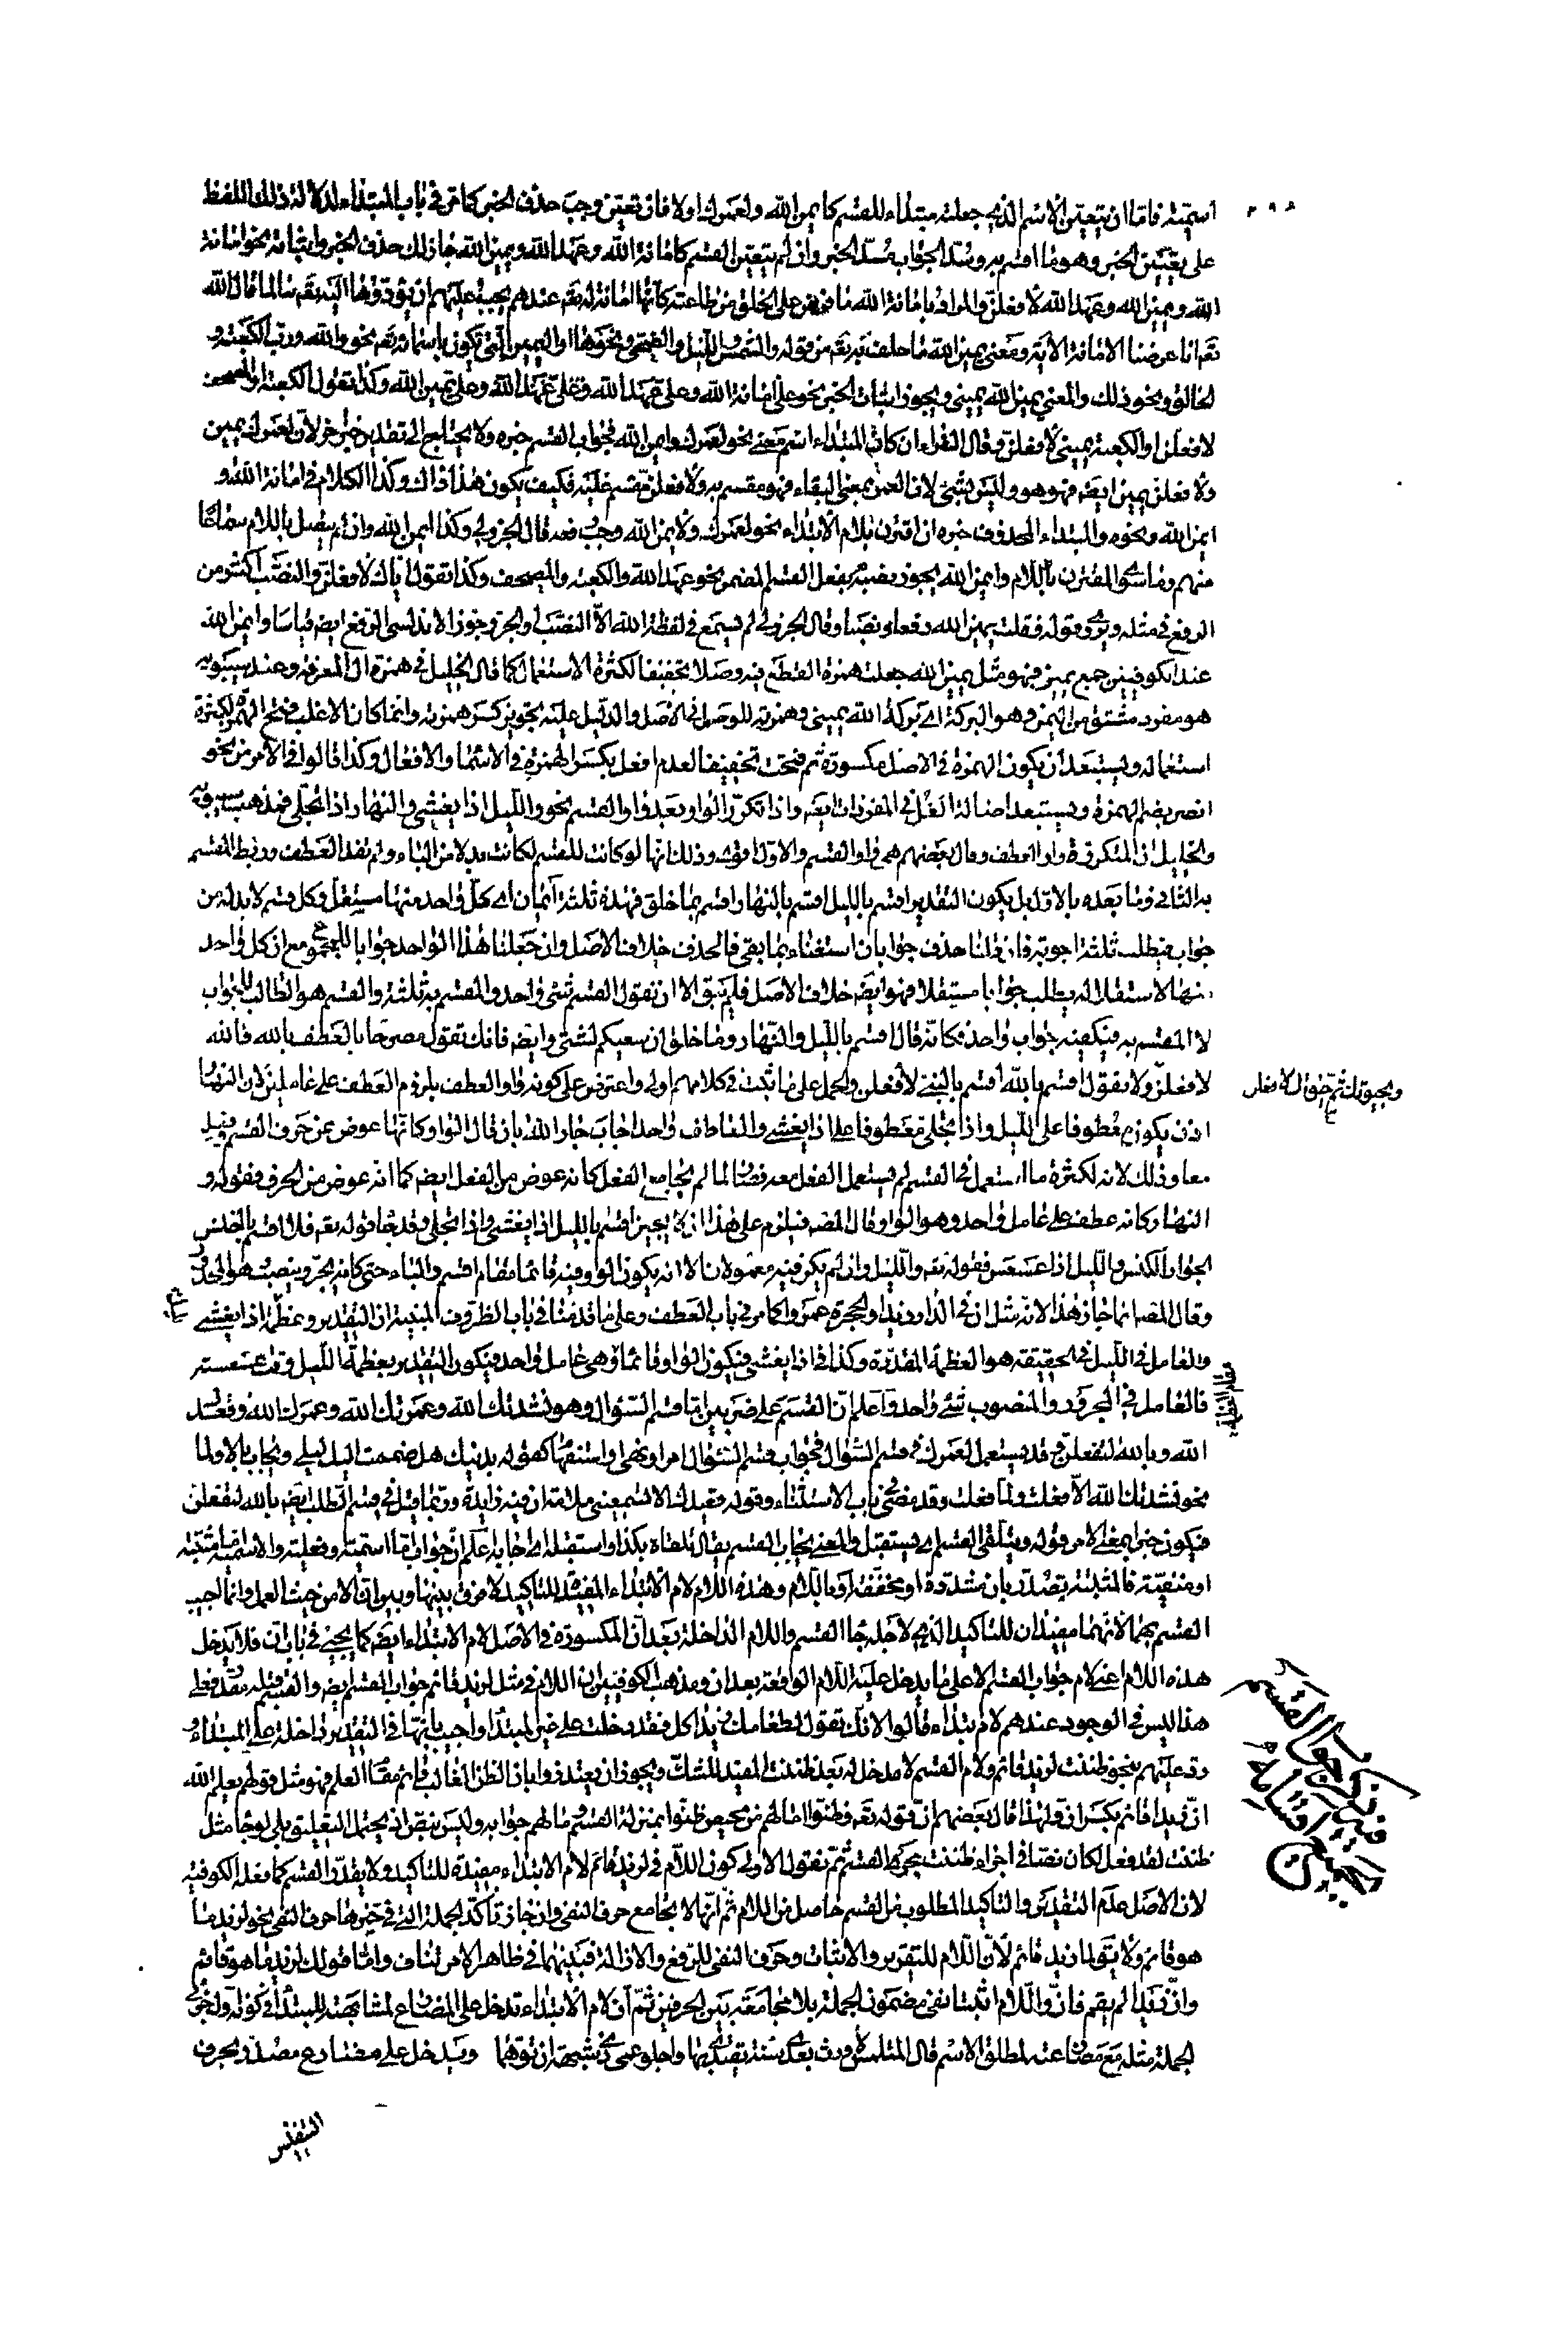 اسميّة فاما ان يتعيّن الاسم الذي جعلته مبتداء للقسم كايمن الله ولعمرك اولا فان تعيّن وجب حذف الخبر كما مرّ في باب المبتداء لدلالة ذلك اللفظ
على تعيين الخبر وهو ما اقسم به وسدّ الجواب مسدّ الخبر وان لم يتعيّن للقسم كامانة الله وعهد الله ويمين الله جاز لك حذف الخبر واثباته نحو امانة
الله ويمين الله وعهد الله لافعلنّ والمراد بامانة الله ما فرض على الخلق من طاعته كأنّها امانة له تعه عندهم يجب عليهم ان يؤدّوها اليه تعه سالما قال الله
تعه انا عرضنا الامانة الآية ومعنى يمين الله ما حلف به تعه من قوله والشمس والليل والضحى ونحوها او اليمين التي تكون باسمائه تعه نحو والله وربّ الكعبة و
الخالق ونحو ذلك والمعنى يمين الله يميني ويجوز اثبات الخبر نحو علىّ امانة الله وعلىّ عهد الله فعلىّ عهد الله وعلىّ يمين الله وكذا تقول الكعبة او المصحف
لافعلنّ او الكعبة يميني لافعلنّ وقال الفراء ان كان المبتداء اسم معنى نحو لعمرك وايمن الله فجواب القسم خبره ولا يحتاج الى تقدير خبر آخر لان لعمرك يمين
ولافعلنّ يمين ايضه فهو هو وليس بشئ لان العمر بمعنى البقاء فهو مقسم به ولافعلنّ مقسم عليه فكيف يكون هذا ذاك وكذا الكلام في امانة الله و
ايمن الله ونحوه والمبتداء المحذوف خبره ان اقترن بلام الابتداء نحو لعمرك ولايمن الله وجب رفعه قال الجزولي وكذا ايمن الله وان لم يتصل باللام سماعا
منهم وما سوى المقترن باللام وايمن الله يجوز نصبه بفعل القسم المضمر نحو عهد الله والكعبة والمصحف وكذا تقول اياك لافعلنّ والنصب اكثر من
الرفع في مثله ويروى قوله فقلت يمين الله رفعا ونصبا وقال الجزولي لم يسمع في لفظة الله الاّ النصب او الجرّ وجوّز الاندلسي الرفع ايضه قياسا وايمن الله
عند الكوفيين جمع يمين فهو مثل يمين الله جعلت همزة القطع فيه وصلا تخفيفا لكثرة الاستعمال كما قال الخليل في همزة ال المعرفة وعند سيبويه
هو مفرد مشتق من اليمن وهو البركة اى بركة الله يميني وهمزته للوصل في الاصل والدليل عليه تجويز كسر همزته وانما كان الاغلب فتح الهمزة لكثرة
استعماله ويستبعد ان يكون الهمزة في الاصل مكسورة ثم فتحت تخفيفا لعدم افعل بكسر الهمزة في الاسماء والافعال وكذا قالوا في الامر من نحو
انصر بضم الهمزة ويستبعد اصالة افعل في المفردات ايضه واذا تكرّر الواو بعد واو القسم نحو والليل اذا يغشى والنهار اذا تجلّى فمذهب سيبويه
والخليل ان المتكررة واو العطف وقال بعضهم هي واو القسم والاول اقوى وذلك انها لو كانت للقسم لكانت بدلا من الباء ولم تفد العطف وربط المقسم
به الثاني وما بعده بالاول بل يكون التقدير اقسم بالليل اقسم بالنهار اقسم بما خلق فهذه ثلثة ايمان اى كلّ واحد منها مستقلّ وكل قسم لا بد له من
جواب فيطلب ثلثة اجوبة فان قلنا حذف جوابان استغناء بما بقى فالحذف خلاف الاصل وان جعلنا هذا الواحد جوابا للمجموع مع ان كل واحد
منها لاستقلاله يطلب جوابا مستقلا فهو ايضه خلاف الاصل فلم يبق الا ان نقول القسم شئ واحد والمقسم به ثلثة والقسم هو الطالب للجواب
لا المقسم به فيكفيه جواب واحد فكانه قال اقسم بالليل والنهار وما خلق ان سعيكم لشتى وايضه فانك تقول مصرحا بالعطف بالله فالله
لافعلنّ ولا تقول اقسم بالله اقسم بالنبيّ لافعلن والحمل على ما ثبت في كلامهم اولى واعترض على كونه واو العطف بلزوم العطف على عاملين لان النهار
وبحيوتك ثم حقوك لافعلن
اذن يكون معطوفا على الليل واذا تجلى معطوفا على اذا يغشى والعاطف واحد اجاب جار الله بان قال الواو كانها عوض عن حرف القسم وفعله
معا وذلك لانه لكثرة ما استعمل في القسم لم يستعمل الفعل معه فصار لما لم يجامع الفعل كانه عوض من الفعل ايضه كما انه عوض من الحرف فقوله و
النهار كانه عطف على عامل واحد وهو الواو وقال المصه فيلزم على هذا ان لا يجيز اقسم بالليل اذا يغشى واذا تجلى وقد جاء قوله تعه فلا اقسم بالخنس
الجوار الكنس والليل اذا عسعس فقوله تعه والليل وان لم يكن فيه معمولان الا انه يكون الواو فيه قائما مقام اقسم والباء حتى كانه الجرّ وينصب هو المحذور
وقال المصه انما جاز هذا لانه مثل ان في الدار زيدا والحجرة عمروا كما مرّ في باب العطف وعلى ما قدمنا في باب الظروف المبنية ان التقدير وعظمة اذا يغشى
والعامل في الليل في الحقيقة هو العظمة المقدرة وكذا في اذا يغشى فيكون الواو قائما وهي عامل واحد فيكون التقدير بعظمة الليل وقت عسعسته
فالعامل في المجرور والمنصوب شئ واحد واعلم انّ القسم على ضربين امّا قسم السؤال وهو نشدتك الله وعمرتك الله وعمرك الله وقعيدك
الله وبالله لتفعلنّ وقد يستعمل لعمرك في قسم السؤال فجواب قسم السؤال امر او نهى او استفهام كقوله بدينك هل ضممت اليك ليلى ويجاب بالاّ ولمّا
نحو نشدتك الله الاّ فعلت ولمّا فعلت وقد مضى في باب الاستثناء وقوله قعيدك ان لا تسمعيني ملامة ان فيه زايدة وربّما قيل في قسم الطلب ايضه بالله لتفعلن
فيكون خبرا بمعنى الامر قوله ويتلقى القسم اى يستقبل والمعنى يجاب القسم يقال تلقاه بكذا واستقبله اى اجابه اعلم ان جواب القسم امّا اسميّة وفعليّة والاسميّة امّا مثبتة
او منفيّة فالمثبتة تصدّر بانّ مشدّدة او مخفّفة او باللام وهذه اللام لام الابتداء المفيدة للتاكيد لا فرق بينها وبين انّ الا من حيث العمل وانما اجيب
القسم بهما لانهما مفيدان للتاكيد الذي لاجله جاء القسم واللام الداخلة بعد ان المكسورة في الاصل لام الابتداء ايضه كما يجئ في باب ان فلا يدخل
هذه اللام اعنى لام جواب القسم الا على ما يدخل عليه اللام الواقعة بعد ان ومذهب الكوفيين ان اللام في مثل لزيد قائم جواب القسم ايضه والقسم قبله مقدّر فعلى
هذا ليس في الوجود عندهم لام ابتداء قالوا لانّك تقول لطعامك زيد آكل فقد دخلت على غير المبتدأ واجيب بانّها في التقدير داخلة على المبتداء و
ردّ عليهم بنحو ظننت لزيد قائم ولام القسم لا مدخل له بعد ظننت المفيد للشكّ ويجوز ان يعتذروا بان الظن الغالب قائم مقام العلم فهو مثل قولهم يعلم الله
انّ زيدا قائم بكسر انّ ولهذا قال بعضهم انّ قوله تعه وظنوا ما لهم من محيص ظنّوا بمنزلة القسم وما لهم جوابه وليس بنصّ اذ يحتمل التعليق بلى لو جاء مثل
ظننت لقد فعل لكان نصا في اجراء ظننت مجرى القسم ثم نقول الاولى كون اللام في لزيد قائم لام الابتداء مفيدة للتاكيد ولا يقدّر القسم كما فعله الكوفية
لان الاصل عدم التقدير والتاكيد المطلوب من القسم حاصل من اللام ثم انّها لا تجامع حرف النفى وان جاز تاكّد الجملة التي في خبرها حرف النفى نحو لزيد ما
هو قائم ولا يق لما زيد قائم لانّ اللام للتقرير والاثبات وحرف النفى للرّفع والازالة فبينهما في ظاهر الامر تناف وامّا قولك لزيد ما هو قائم
وانّ زيدا لم يقم فانّ واللام اثبتا نفى مضمون الجملة بلا مجامعة بين الحرفين ثم ان لام الابتداء تدخل على المضارع لمشابهته للمبتدأ في كونه اول جزئي
الجملة مثله مع مضارعته لمطلق الاسم قال المتلمس لاورث بعدى سنة يقتدى بها واجلو عمى ذى شبهة ان توهما ويدخل على مضارع مصدّر بحرف
التنفيس